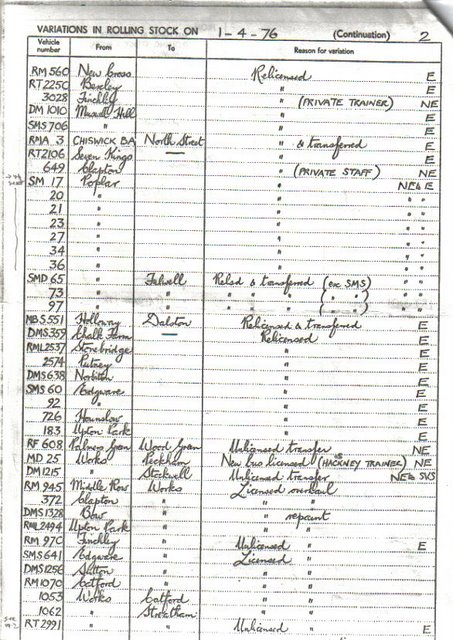 VARIATIONS IN ROLLING STOCK ON 1-4-76 (Continuation) 2
Vehicle number From To Reason for variation
RM 560 New Cross Relicensed E
RT 2250 Bexley " E
3028 Finchley " (PRIVATE TRAINER) NE
DM 1010 Muswell Hill " E
SMS 706 " " E
RMA 3 CHISWICK BA North Street " & transferred E
RT 2106 Seven Kings — " E
649 Clapton " (PRIVATE STAFF) NE
SM 17 Poplar " NE to E
20 " " " "
21 " " " "
23 " " " "
27 " " " "
34 " " " "
36 " " " "
SMD 65 " Fulwell Relsd & transferred (exc SMS) " "
73 " " " " " ( " " ) " "
97 " " " " " ( " " ) " "
MBS 551 Holloway Dalston Relicensed & transferred E
DMS 359 Chalk Farm — Relicensed E
RML 2537 Stonebridge " E
2574 Putney " E
DMS 638 Norbiton " E
SMS 60 Edgware " E
92 " " E
726 Hounslow " E
183 Upton Park " E
RF 608 Palmers Green Wood Green Unlicensed transfer NE
MD 25 Works Peckham New bus licensed (HACKNEY TRAINER) NE
DM 1215 " Stockwell Unlicensed transfer NE to SVS
RM 945 Middle Row Works Licensed overhaul
372 Clapton " " "
DMS 1328 Bow " " repaint
RML 2494 Upton Park " " "
RM 970 Finchley " Unlicensed " E
SMS 641 Edgware " Licensed "
DMS 1256 Sutton " " "
RM 1070 Catford " " "
1053 Works Catford " "
1062 " Streatham " "
RT 2991 " " Unlicensed " E